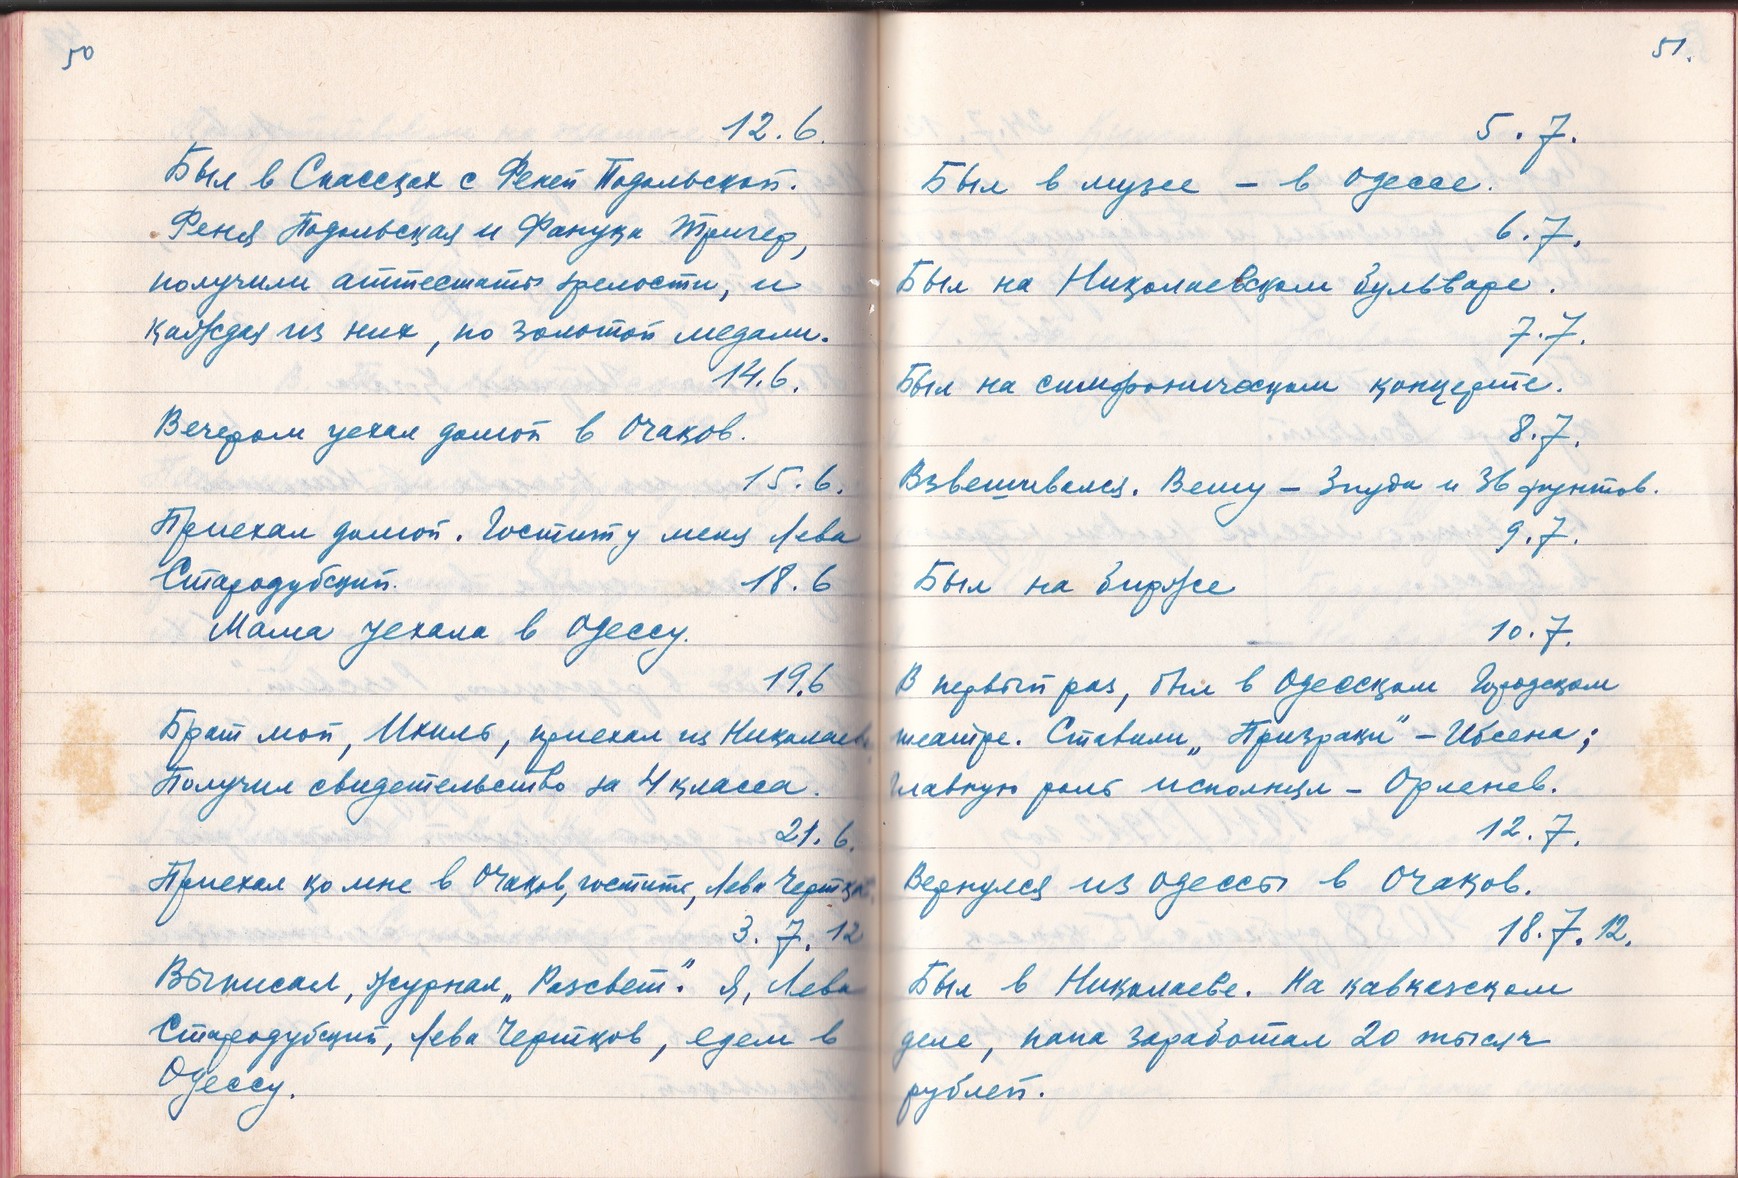 50
12.6.
Был в Спасских с Феней Подольской.
Феня Подольская и Фанука Тригер,
получили аттестаты зрелости, и
каждая из них, по золотой медали.
14.6.
Вечером уехал домой в Очаков.
15.6.
Приехал домой. Гостит у меня Лева
Стародубский. 18.6
Мама уехала в Одессу.
19.6
Брат мой, Ихиль, приехал из Николаева.
Получил свидетельство за 4 класса.
21.6.
Приехал ко мне в Очаков, гостить, Лева Чертков.
3.7.12
Выписал, журнал „Разсвет". Я, Лева
Стародубский, Лева Чертков, едем в
Одессу.
51.
5.7.
Был в музее – в Одессе.
6.7.
Был на Николаевском бульваре.
7.7.
Был на симфоническом концерте.
8.7.
Взвешивался. Вешу – 3 пуда и 36 фунтов.
9.7.
Был на бирже
10.7.
В первый раз, был в Одесском Городском
театре. Ставили „Призраки" – Ибсена;
главную роль исполнял – Орленев.
12.7.
Вернулся из Одессы в Очаков.
18.7.12.
Был в Николаеве. На кавказском
деле, папа заработал 20 тысяч
рублей.